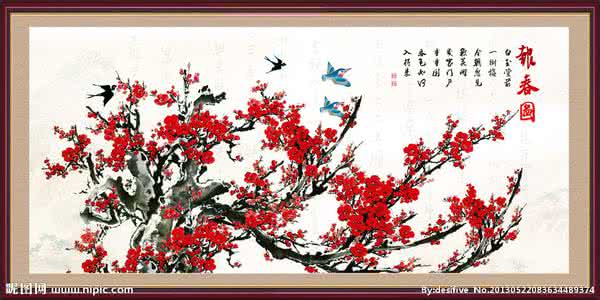 報春圖
白玉堂前
一樹梅
今朝忽見
數花開
兒家門戶
重重閉
春色如何
入得來
昵图网 www.nipic.com
By:desifive No.20130522083634489374